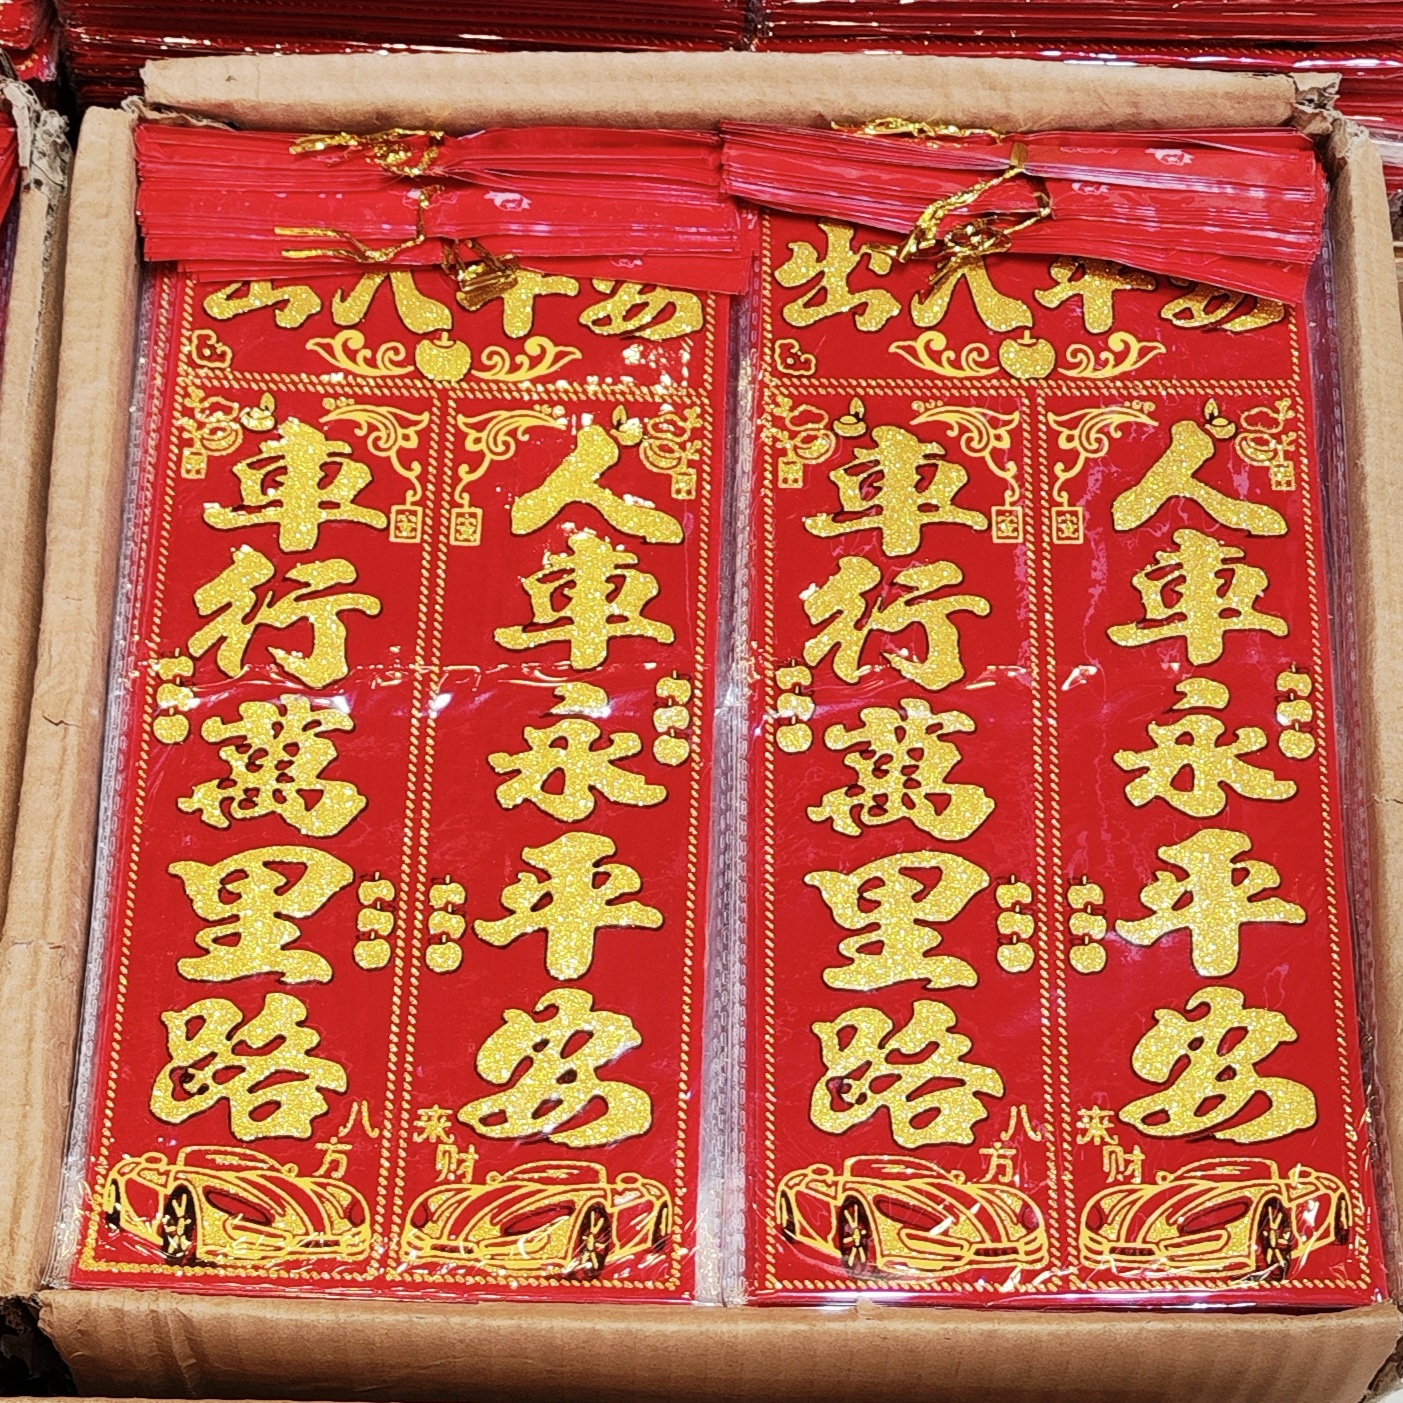 出入平安
車行萬里路
人車永平安
八方
来财
出入平安
車行萬里路
人車永平安
八方
来财